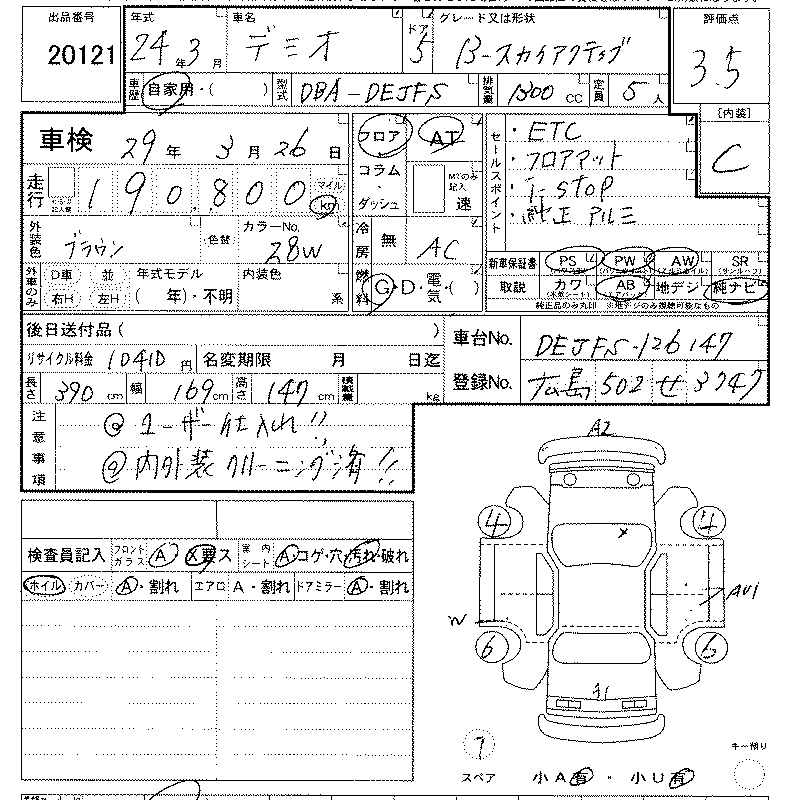 出品番号 年式 車名 ドア グレード又は形状 評価点
20121 24年 3月 デミオ 5 B-スカイアクティブ 3.5
車歴 自家用・( ) 型式 DBA-DEJFS 排気量 1300 CC 定員 5人
[内装] C
車検 29年 3月 26日 フロア AT
セールスポイント ・ETC
・フロアマット
・i-STOP
・純正アルミ
走行 190,800 マイル km コラム・ダッシュ MTのみ記入 速
外装色 ブラウン 色替 カラーNo. 28W 冷房 無 AC
新車保証書 PS PW AW SR (サンルーフ)
外車のみ D車 並 年式モデル 内装色 燃料 G・D・電気・( )
右H 左H ( 年)・不明 系
取説 カワ AB 地デジ 純ナビ
純正品のみ丸印 ※地デジのみ視聴可能なもの
後日送付品 ( ) 車台No. DEJFS-126147
リサイクル料金 10410円 名変期限 月 日迄
登録No. 広島 502 せ 3747
長さ 390 cm 幅 169 cm 高さ 147 cm 積載量 kg
注意事項 @ ユーザー仕入れ!!
@ 内外装クリーニング済!!
A2
4 4
検査員記入 フロントガラス A X要ス 室内シート A コゲ・穴・汚れ・破れ
ホイル カバー A・割れ エアロ A・割れ ドアミラー A・割れ
AU1
W
6 6
A1
7
スペア 小A有・小U有 キー預り